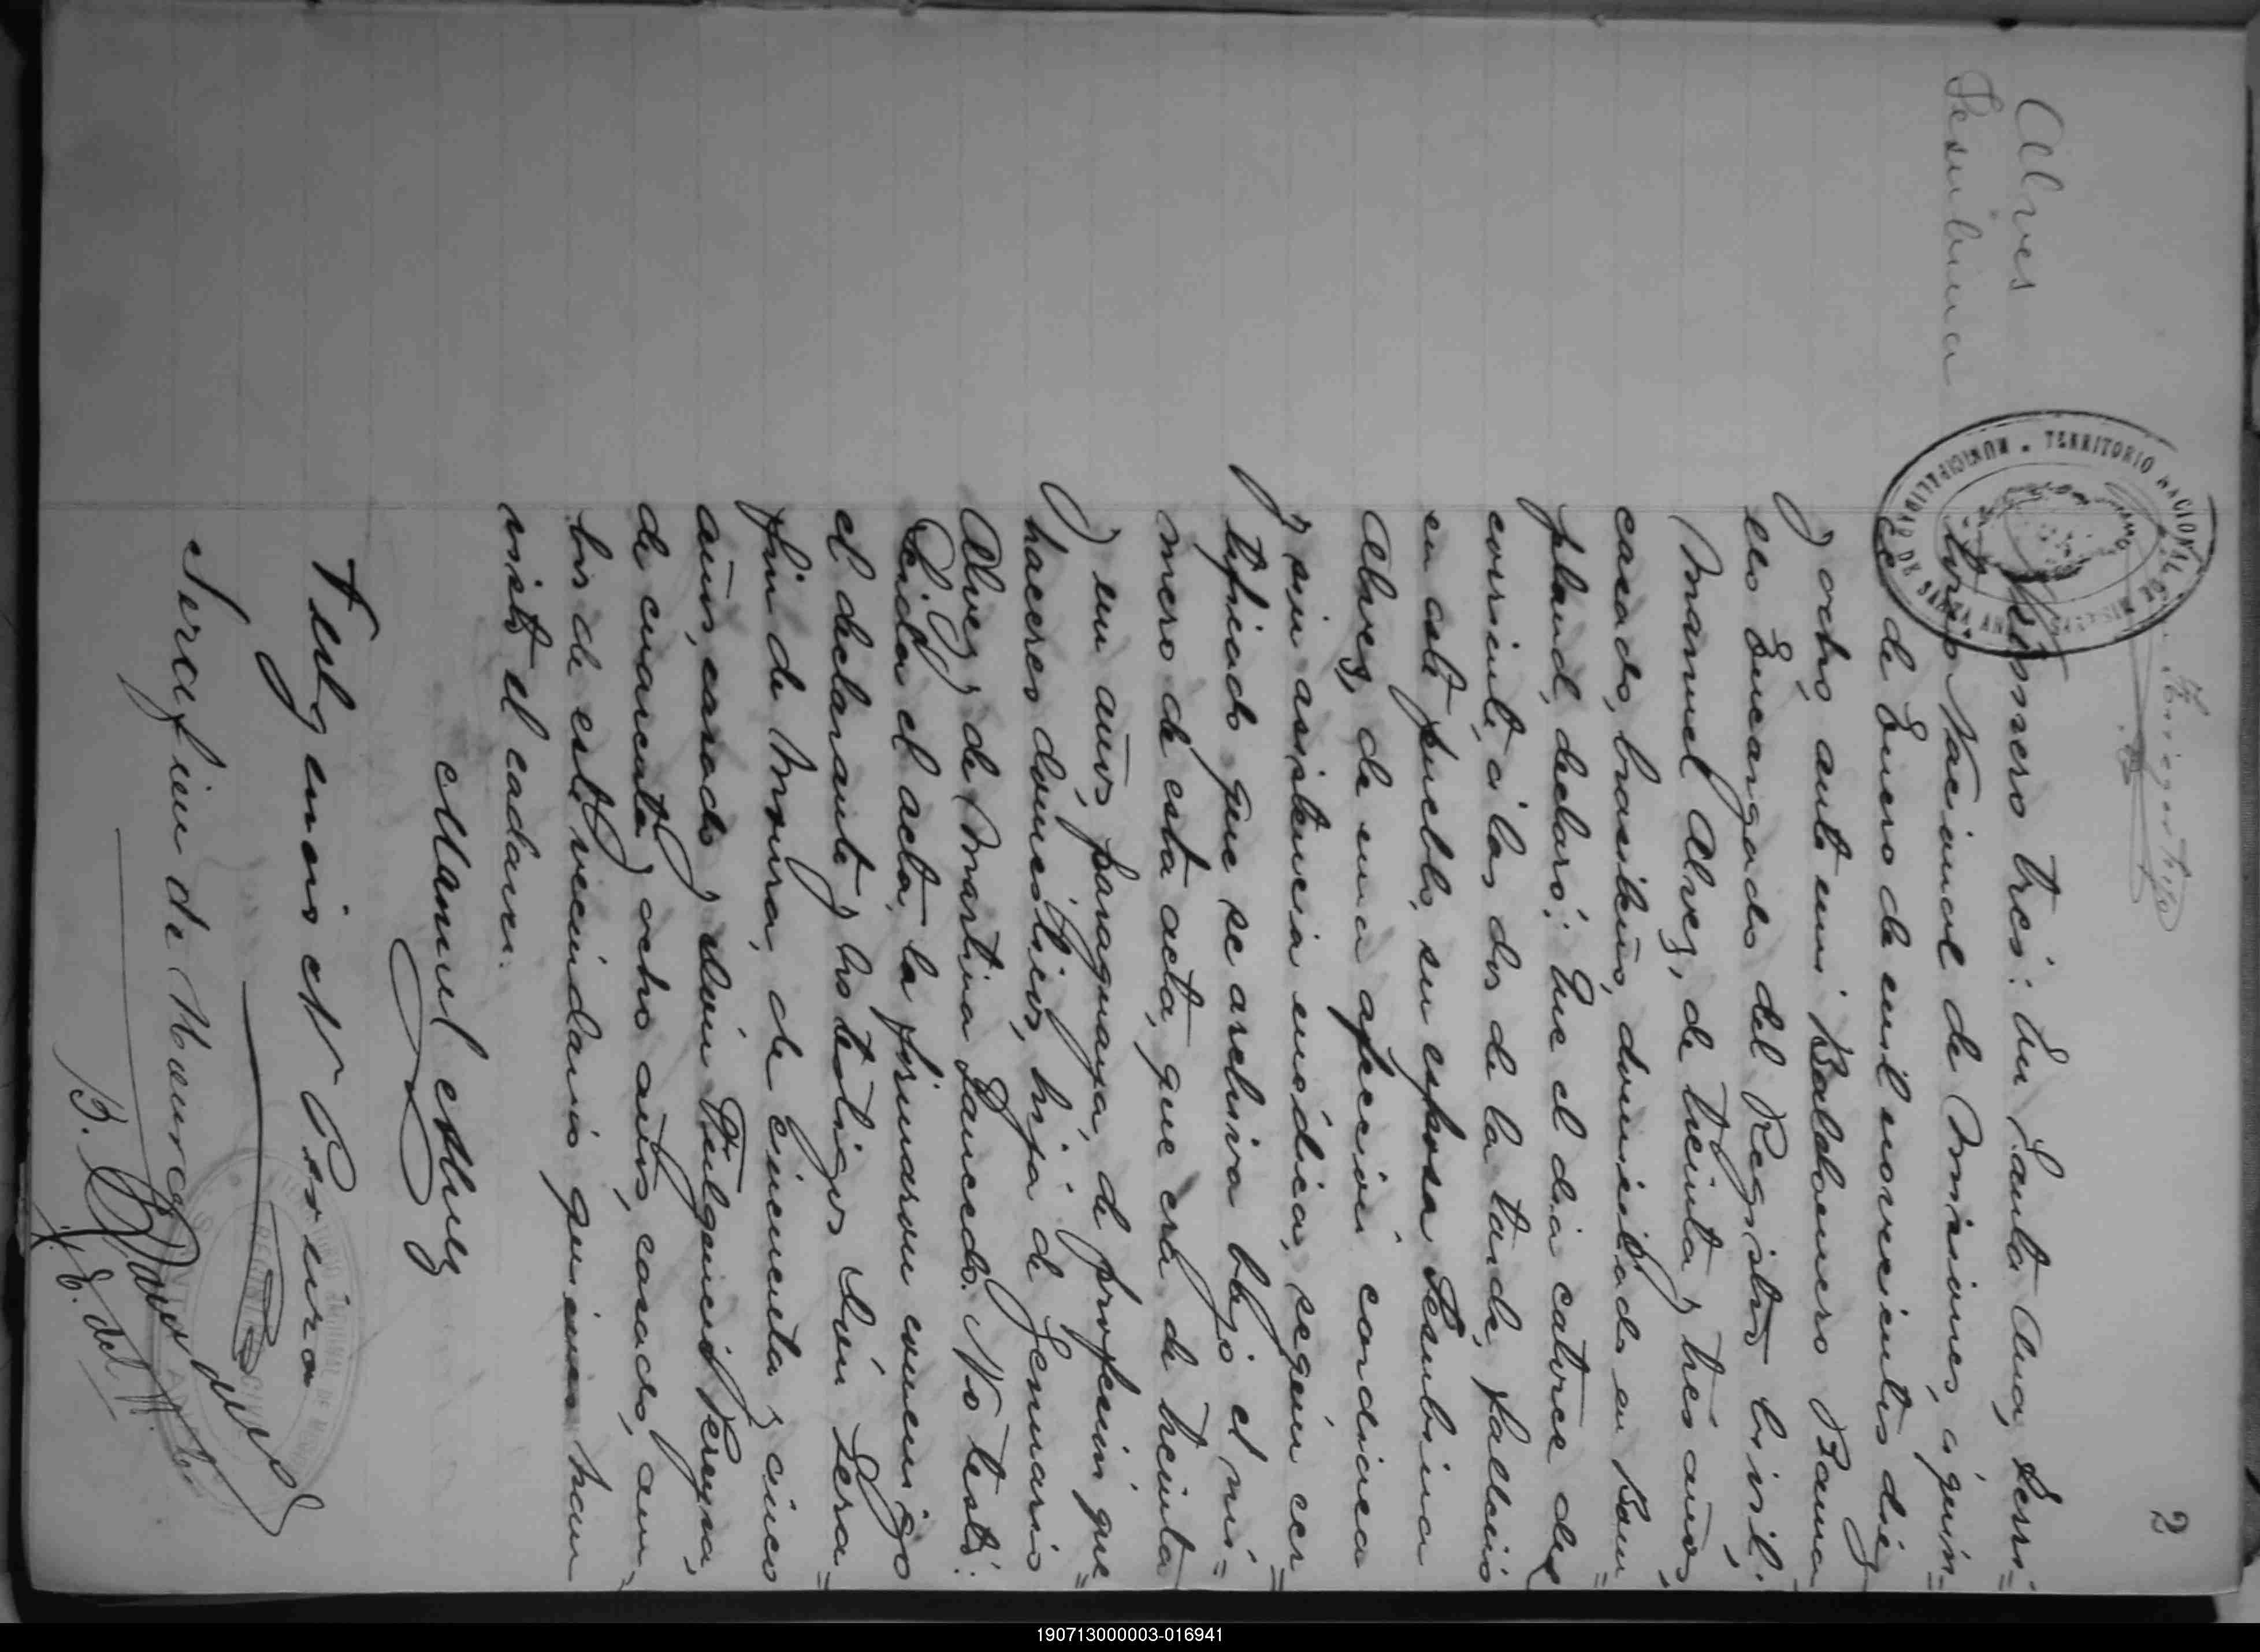 2
Alves
Sesubina
TERRITORIO NACIONAL DE MISIONES
MUNICIPALIDAD DE SANTA ANA
Número tres: En Santa Ana, Terri=
torio Nacional de Misiones, á quin=
ce de Enero de mil novecientos diez
y ocho, ante mi Baldomero
Encargado del Registro Civil;
Manuel Alvez, de treinta y tres años,
casado, brasileño, domiciliado en Bom=
pland, declaró: Que el dia catorce del
corriente á las dos de la tarde, falleció
en este pueblo, su esposa Sesubina
Alvez, de una afección cardiaca
y sin asistencia médica, según cer=
tificado que se archiva bajo el nú=
mero de esta acta, que era de treinta
y un años, paraguaya, de profesión que=
haceres domésticos, hija de Genuario
Alvez y de Martina Saucedo. No testó.
Leida el acta, la firmaron conmigo
el declarante y los testigos Don Sera=
fin de Moura, de cincuenta y cinco
años, casado y Don Fulgencio Pereyra,
de cuarenta y ocho años, casado, am=
bos de este vecindario quienes han
visto el cadaver.
Manuel Alvez
Fulgencio N Pereira
Serafien de Moura
B.
E. del R. C.
190713000003-016941